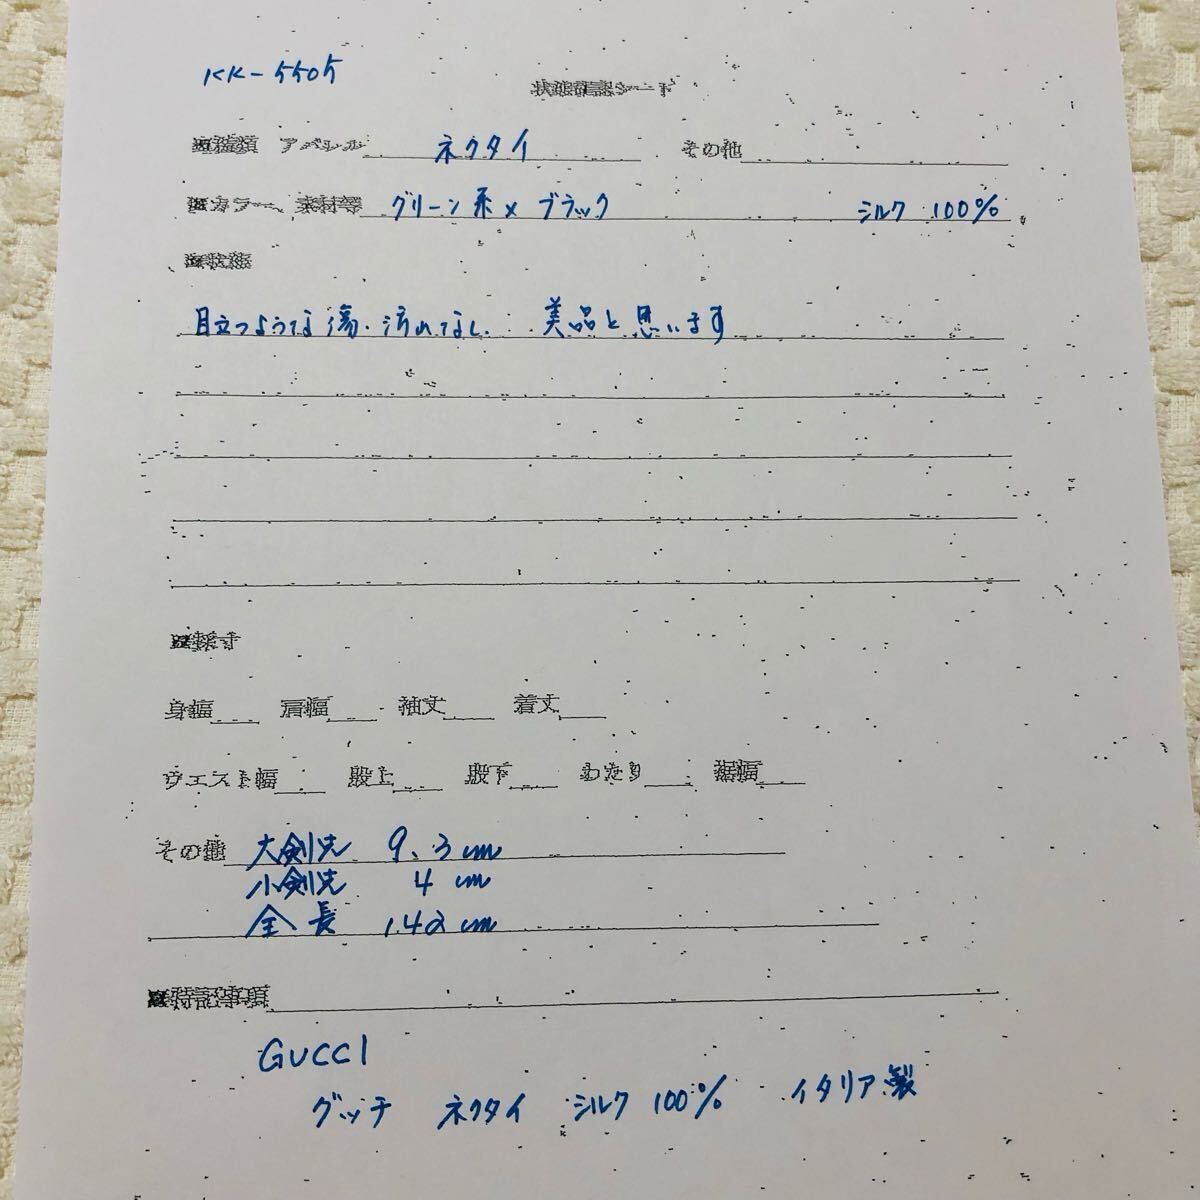 KK-5505
状態確認シート
■種類 アパレル ネクタイ その他
■カラー、素材等 グリーン系×ブラック シルク 100%
■状態
目立つような傷・汚れなし 美品と思います
■採寸
身幅 肩幅 袖丈 着丈
ウエスト幅 股上 股下 わたり 裾幅
その他 大剣先 9.3cm
小剣先 4cm
全長 142cm
■特記事項
GUCCI
グッチ ネクタイ シルク 100% イタリア製